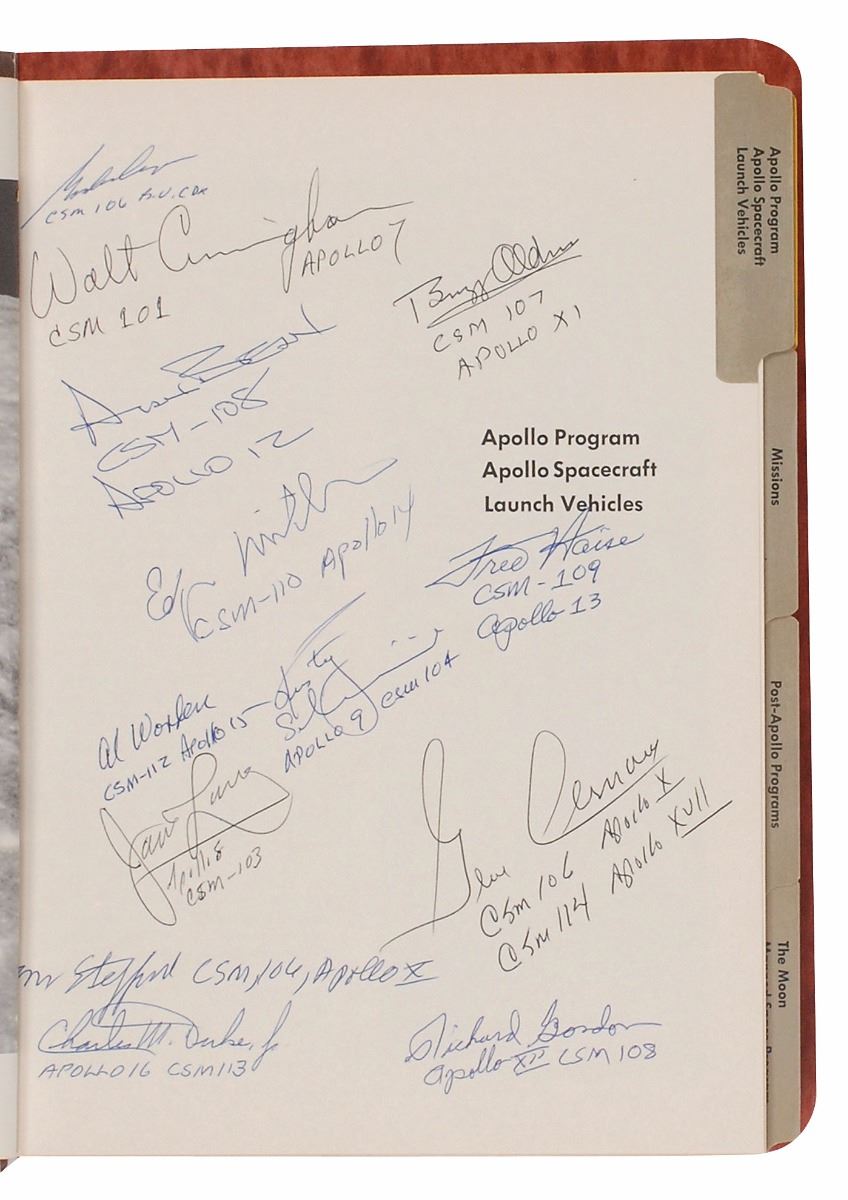 CSM 106
Walt Cunningham
APOLLO 7
CSM 101
Buzz Aldrin
CSM 107
APOLLO XI
Alan BEAN
CSM-108
APOLLO 12
Apollo Program
Apollo Spacecraft
Launch Vehicles
Edgar Mitchell
CSM-110 Apollo 14
Fred Haise
CSM-109
Apollo 13
Al Worden
CSM-112 Apollo 15
Rusty
APOLLO 9 CSM 104
James Lovell
Apollo 8
CSM-103
Gene Cernan
CSM 106 Apollo X
CSM 114 Apollo XVII
Tom Stafford CSM, 106, Apollo X
Charles M. Duke, Jr.
APOLLO 16 CSM 113
Richard Gordon
Apollo XII CSM 108
Apollo Program
Apollo Spacecraft
Launch Vehicles
Missions
Post-Apollo Programs
The Moon